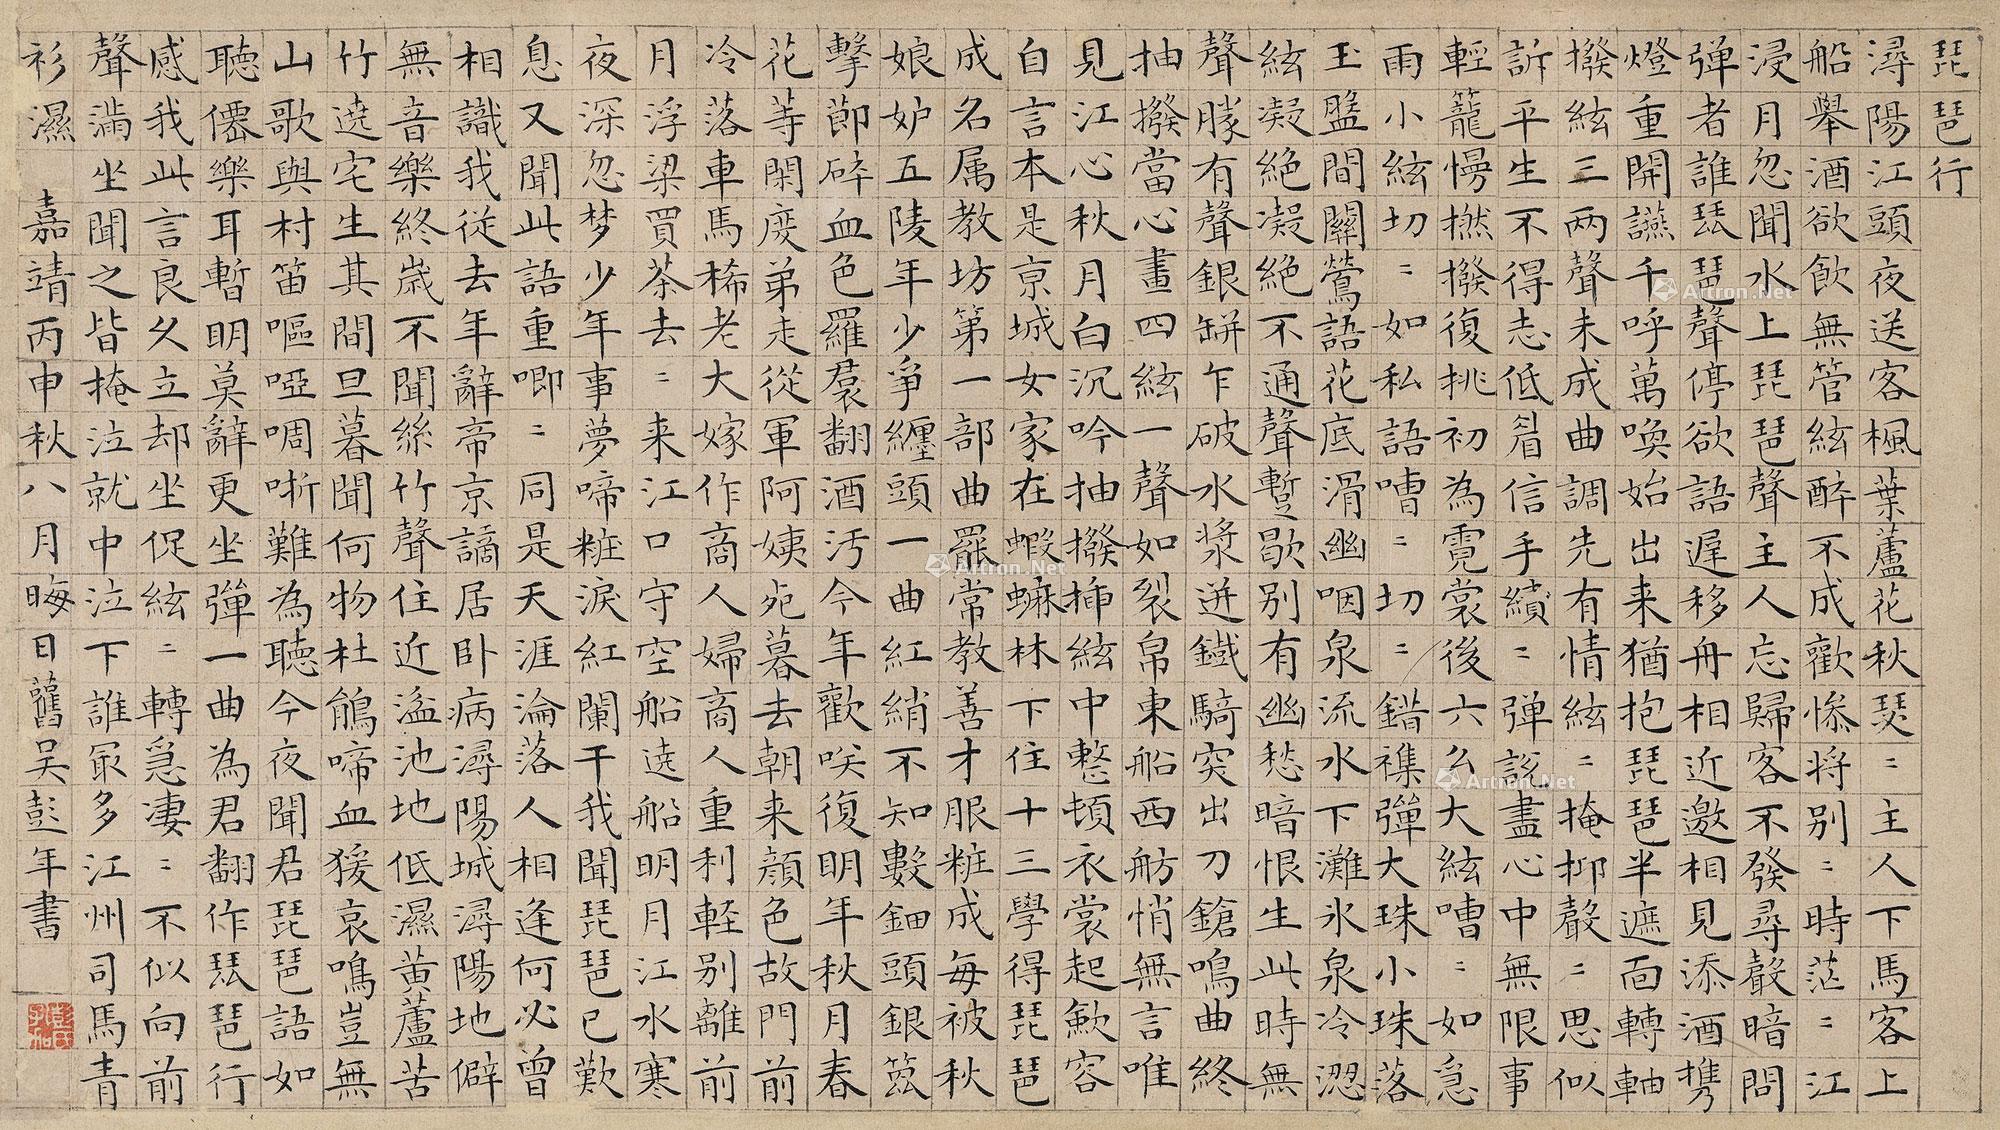 琵琶行
潯陽江頭夜送客楓葉蘆花秋瑟〻主人下馬客上
船舉酒欲飲無管絃醉不成歡慘將別〻時茫〻江
浸月忽聞水上琵琶聲主人忘歸客不發尋聲暗問
弹者誰琵琶聲停欲語遲移舟相近邀相見添酒携
燈重開讌千呼萬喚始出来猶抱琵琶半遮面轉軸
撥絃三两聲未成曲調先有情絃〻掩抑聲〻思似
訴平生不得志低眉信手續〻弹説盡心中無限事
輕籠慢撚撥復挑初為霓裳後六么大絃嘈〻如急
雨小絃切〻如私語嘈〻切〻錯襍彈大珠小珠落
玉盤間關鶯語花底滑幽咽泉流水下灘氷泉冷澀
絃凝絶凝絶不通聲暫歇別有幽愁暗恨生此時無
聲勝有聲銀缾乍破水漿迸鐵騎突出刀鎗鳴曲終
抽撥當心畫四絃一聲如裂帛東船西舫悄無言唯
見江心秋月白沉吟抽撥揷絃中整頓衣裳起歛容
自言本是京城女家在蝦蟆林下住十三學得琵琶
成名属教坊第一部曲罷常教善才服粧成每被秋
娘妒五陵年少爭纏頭一曲紅綃不知數鈿頭銀篦
擊節碎血色羅裠翻酒汚今年歡咲復明年秋月春
花等閑度弟走從軍阿姨死暮去朝来顔色故門前
冷落車馬稀老大嫁作商人婦商人重利軽別離前
月浮梁買茶去〻来江口守空船遶船明月江水寒
夜深忽梦少年事夢啼粧淚紅闌干我聞琵琶已歎
息又聞此語重唧〻同是天涯淪落人相逢何必曾
相識我從去年辭帝京謫居卧病潯陽城潯陽地僻
無音樂終歳不聞絲竹聲住近湓池地低濕黄蘆苦
竹遶宅生其間旦暮聞何物杜鵑啼血猨哀鳴豈無
山歌與村笛嘔啞啁哳難為聽今夜聞君琵琶語如
聽僊樂耳暫明莫辭更坐彈一曲為君翻作琵琶行
感我此言良久立却坐促絃〻轉急凄〻不似向前
聲滿坐聞之皆掩泣就中泣下誰冣多江州司馬青
衫濕 嘉靖丙申秋八月晦日舊吳彭年書
Artron.Net
Artron.Net
Artron.Net